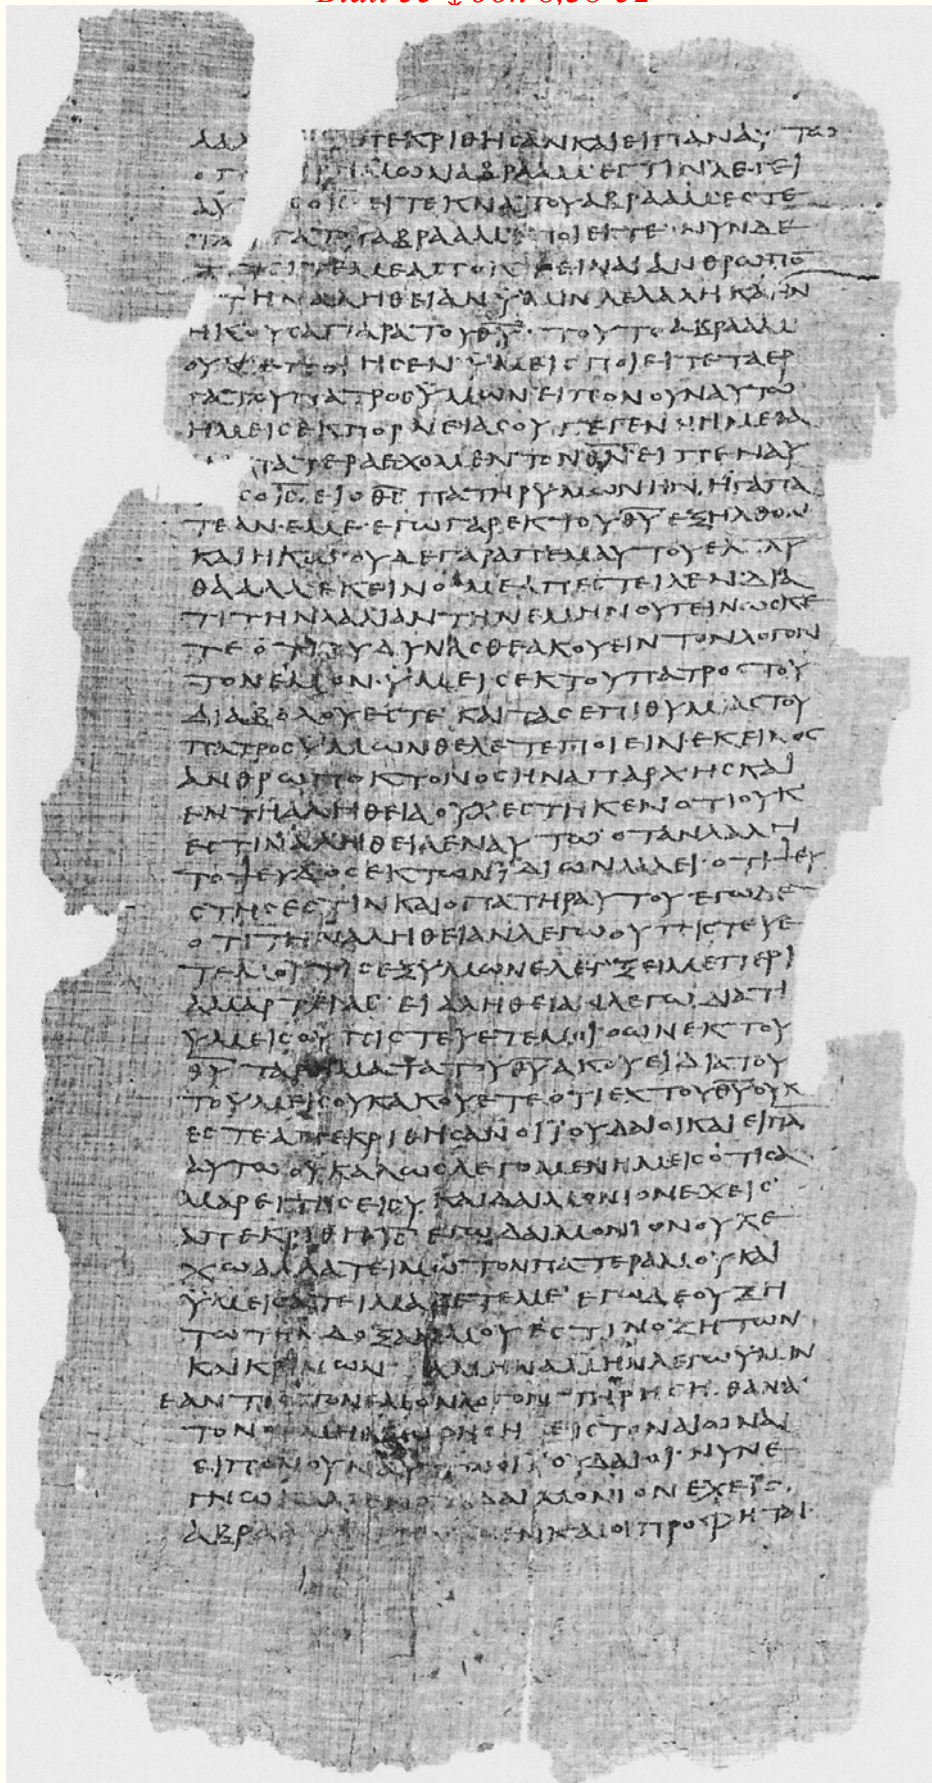 Blatt ↓ Joh 8,38-52
ΤΕΚΡΙΘΗСΑΝ ΚΑΙ ΕΙΠΑΝ ΑΥΤΩ
ΑΒΡΑΑΜ ΕСΤΙΝ ΛΕΓΕΙ
Ο ΙС ΕΙ ΤΕΚΝΑ ΤΟΥ ΑΒΡΑΑΜ ΕСΤΕ
ΑΒΡΑΑΜ ΠΟΙΕΙΤΕ ΝΥΝ ΔΕ
ΜΕ ΑΠΟΚΤΕΙΝΑΙ ΑΝΘΡΩΠΟ
ΤΗΝ ΑΛΗΘΕΙΑΝ ΥΜΙΝ ΛΕΛΑΛΗΚΑ ΗΝ
ΗΚΟΥСΑ ΠΑΡΑ ΤΟΥ ΘΥ ΤΟΥΤΟ ΑΒΡΑΑΜ
ΟΥΚ ΕΠΟΙΗСΕΝ ΥΜΕΙС ΠΟΙΕΙΤΕ ΤΑ ΕΡ
ΓΑ ΤΟΥ ΠΑΤΡΟС ΥΜΩΝ ΕΙΠΟΝ ΟΥΝ ΑΥΤΩ
ΗΜΕΙС ΕΚ ΠΟΡΝΕΙΑС ΟΥ ΓΕΓΕΝΗΜΕΘΑ
ΠΑΤΕΡΑ ΕΧΟΜΕΝ ΤΟΝ ΘΝ ΕΙΠΕΝ ΑΥ
Ο ΙС ΕΙ Ο ΘС ΠΑΤΗΡ ΥΜΩΝ ΗΝ ΗΓΑΠΑ
ΤΕ ΑΝ ΕΜΕ ΕΓΩ ΓΑΡ ΕΚ ΤΟΥ ΘΥ ΕΞΗΛΘΟΝ
ΚΑΙ ΗΚΩ ΟΥΔΕ ΓΑΡ ΑΠ ΕΜΑΥΤΟΥ ΕΛΗΛΥ
ΘΑ ΑΛΛ ΕΚΕΙΝΟС ΜΕ ΑΠΕСΤΕΙΛΕΝ ΔΙΑ
ΤΙ ΤΗΝ ΛΑΛΙΑΝ ΤΗΝ ΕΜΗΝ ΟΥ ΓΕΙΝΩСΚΕ
ΤΕ ΟΤΙ ΟΥ ΔΥΝΑСΘΕ ΑΚΟΥΕΙΝ ΤΟΝ ΛΟΓΟΝ
ΤΟΝ ΕΜΟΝ ΥΜΕΙС ΕΚ ΤΟΥ ΠΑΤΡΟС ΤΟΥ
ΔΙΑΒΟΛΟΥ ΕСΤΕ ΚΑΙ ΤΑС ΕΠΙΘΥΜΙΑС ΤΟΥ
ΠΑΤΡΟС ΥΜΩΝ ΘΕΛΕΤΕ ΠΟΙΕΙΝ ΕΚΕΙΝΟС
ΑΝΘΡΩΠΟΚΤΟΝΟС ΗΝ ΑΠ ΑΡΧΗС ΚΑΙ
ΕΝ ΤΗ ΑΛΗΘΕΙΑ ΟΥΧ ΕСΤΗΚΕΝ ΟΤΙ ΟΥΚ
ΕСΤΙΝ ΑΛΗΘΕΙΑ ΕΝ ΑΥΤΩ ΟΤΑΝ ΛΑΛΗ
ΤΟ ΨΕΥΔΟС ΕΚ ΤΩΝ ΙΔΙΩΝ ΛΑΛΕΙ ΟΤΙ ΨΕΥ
СΤΗС ΕСΤΙΝ ΚΑΙ Ο ΠΑΤΗΡ ΑΥΤΟΥ ΕΓΩ ΔΕ
ΟΤΙ ΤΗΝ ΑΛΗΘΕΙΑΝ ΛΕΓΩ ΟΥ ΠΙСΤΕΥΕ
ΤΕ ΜΟΙ ΤΙС ΕΞ ΥΜΩΝ ΕΛΕΓΞΕΙ ΜΕ ΠΕΡΙ
ΑΜΑΡΤΕΙΑС ΕΙ ΑΛΗΘΕΙΑΝ ΛΕΓΩ ΔΙΑ ΤΙ
ΥΜΕΙС ΟΥ ΠΙСΤΕΥΕΤΕ ΜΟΙ Ο ΩΝ ΕΚ ΤΟΥ
ΘΥ ΤΑ ΡΗΜΑΤΑ ΤΟΥ ΘΥ ΑΚΟΥΕΙ ΔΙΑ ΤΟΥ
ΤΟ ΥΜΕΙС ΟΥΚ ΑΚΟΥΕΤΕ ΟΤΙ ΕΚ ΤΟΥ ΘΥ ΟΥΚ
ΕСΤΕ ΑΠΕΚΡΙΘΗСΑΝ ΟΙ ΙΟΥΔΑΙΟΙ ΚΑΙ ΕΙΠΑ
ΑΥΤΩ ΟΥ ΚΑΛΩС ΛΕΓΟΜΕΝ ΗΜΕΙС ΟΤΙ СΑ
ΜΑΡΕΙΤΗС ΕΙ СΥ ΚΑΙ ΔΑΙΜΟΝΙΟΝ ΕΧΕΙС
ΑΠΕΚΡΙΘΗ ΙС ΕΓΩ ΔΑΙΜΟΝΙΟΝ ΟΥΚ Ε
ΧΩ ΑΛΛΑ ΤΕΙΜΩ ΤΟΝ ΠΑΤΕΡΑ ΜΟΥ ΚΑΙ
ΥΜΕΙС ΑΤΕΙΜΑΖΕΤΕ ΜΕ ΕΓΩ ΔΕ ΟΥ ΖΗ
ΤΩ ΤΗΝ ΔΟΞΑΝ ΜΟΥ ΕСΤΙΝ Ο ΖΗΤΩΝ
ΚΑΙ ΚΡΙΝΩΝ ΑΜΗΝ ΑΜΗΝ ΛΕΓΩ ΥΜΙΝ
ΕΑΝ ΤΙС ΤΟΝ ΕΜΟΝ ΛΟΓΟΝ ΤΗΡΗСΗ ΘΑΝΑ
ΤΟΝ ΟΥ ΜΗ ΘΕΩΡΗСΗ ΕΙС ΤΟΝ ΑΙΩΝΑ
ΕΙΠΟΝ ΟΥΝ ΑΥΤΩ ΟΙ ΙΟΥΔΑΙΟΙ ΝΥΝ Ε
ΓΝΩ ΔΑΙΜΟΝΙΟΝ ΕΧΕΙС
ΑΒΡΑ ΚΑΙ ΟΙ ΠΡΟΦΗΤΑΙ